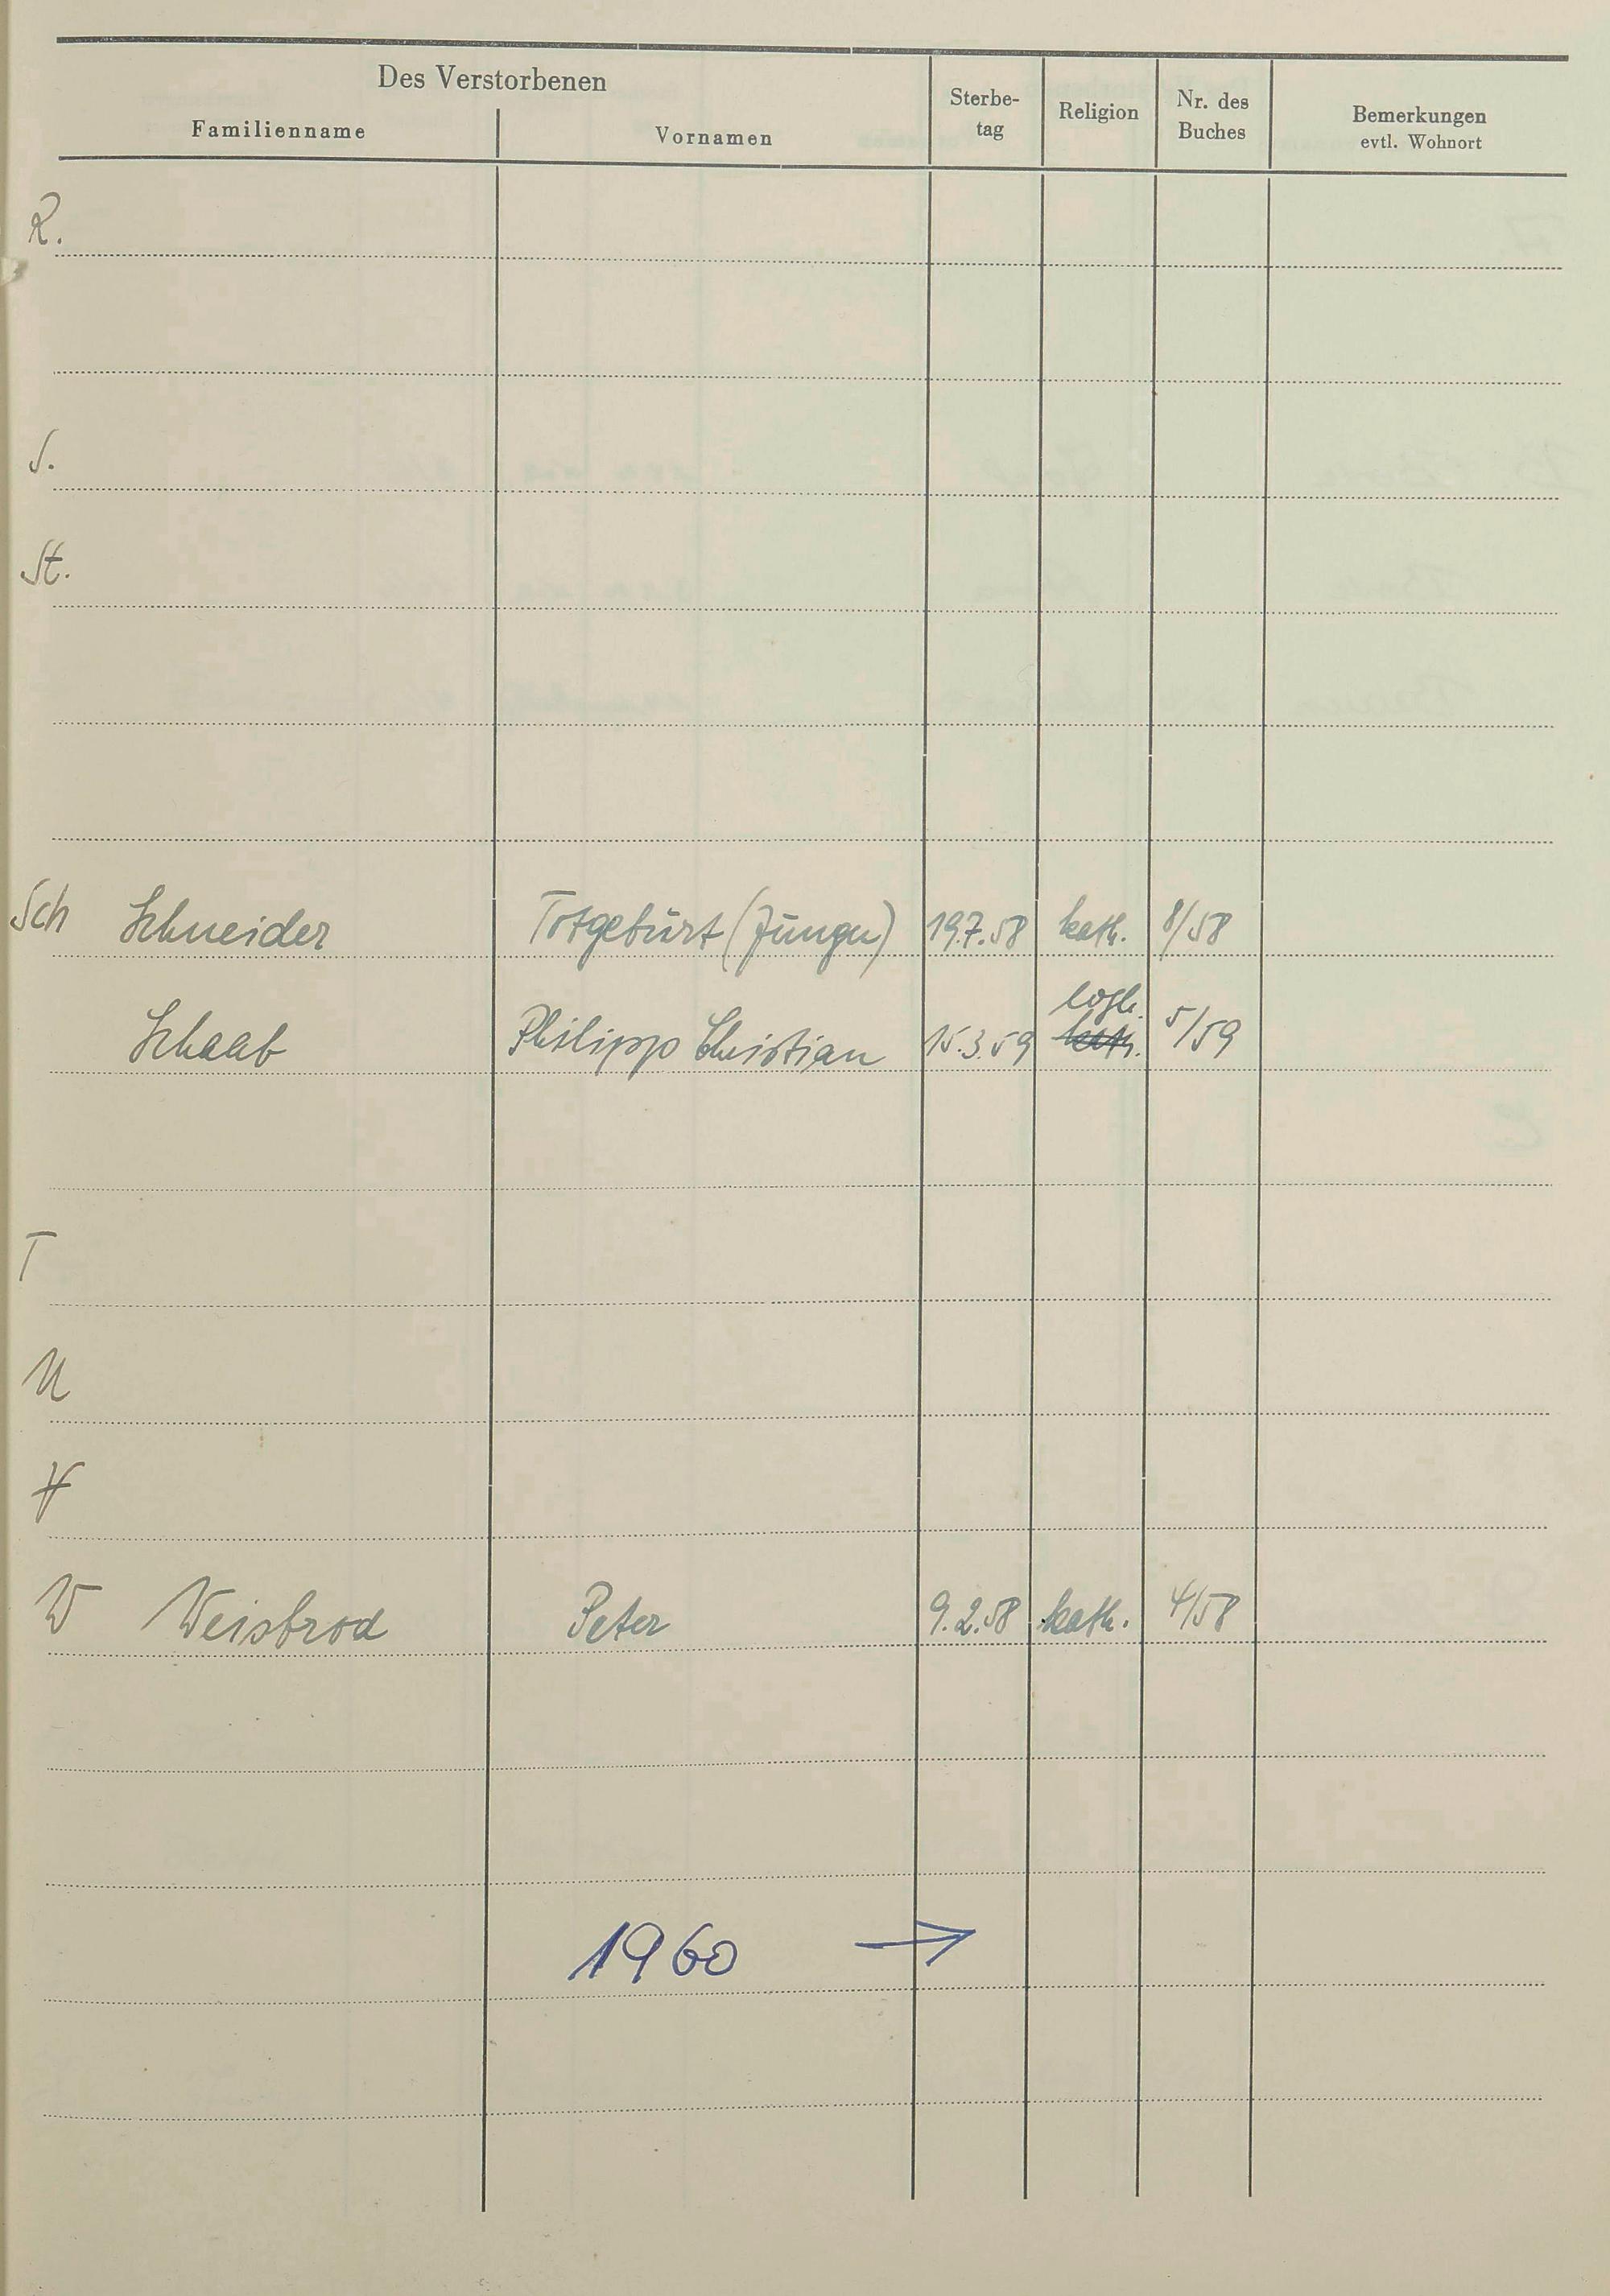 Des Verstorbenen
Familienname Vornamen Sterbe-tag Religion Nr. des Buches Bemerkungen evtl. Wohnort
R.
S.
St.
Sch Schneider Totgeburt (Jungen) 19.7.58 kath. 8/58
Schaab Philipp Christian 15.3.59 evgl. kath. 5/59
T
U
V
W Weisbrod Peter 9.2.58 kath. 4/58
1960 →